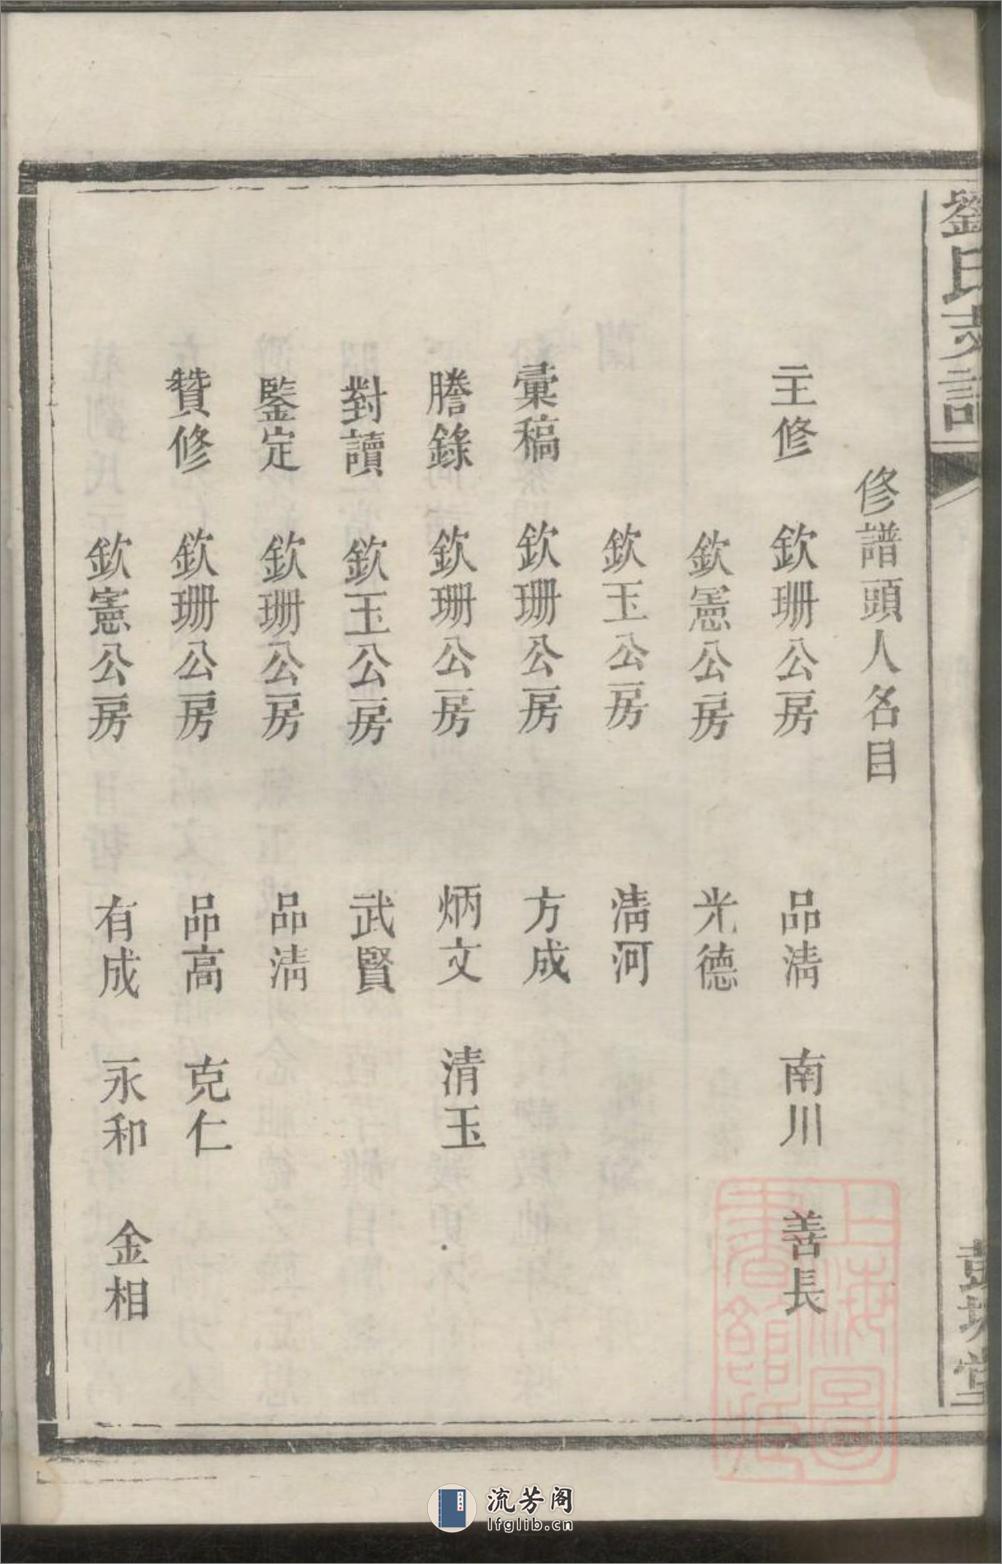 劉氏支譜
彭城堂
修譜頭人名目
主修 欽珊公房 品淸 南川 善長
欽憲公房 光德
欽玉公房 淸河
彙稿 欽珊公房 方成
謄錄 欽珊公房 炳文 清玉
對讀 欽玉公房 武賢
鑒定 欽珊公房 品淸
贊修 欽珊公房 品高 克仁
欽憲公房 有成 永和 金相
上海圖書館藏
流芳阁
lfglib.cn